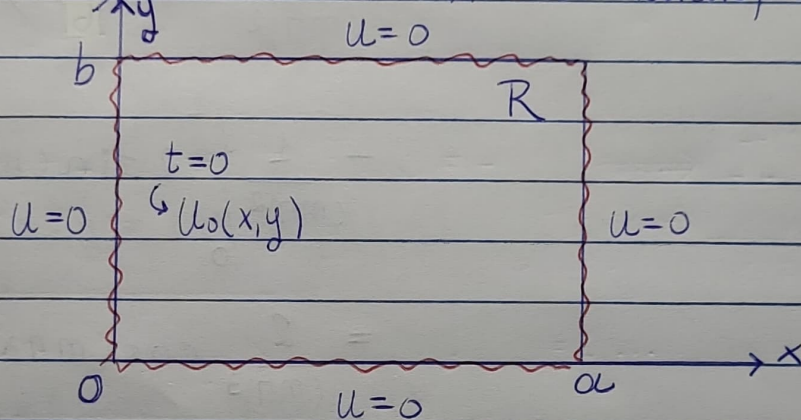 y
u=0
b
R
t=0
u=0
↳ u₀(x,y)
u=0
x
0
a
u=0